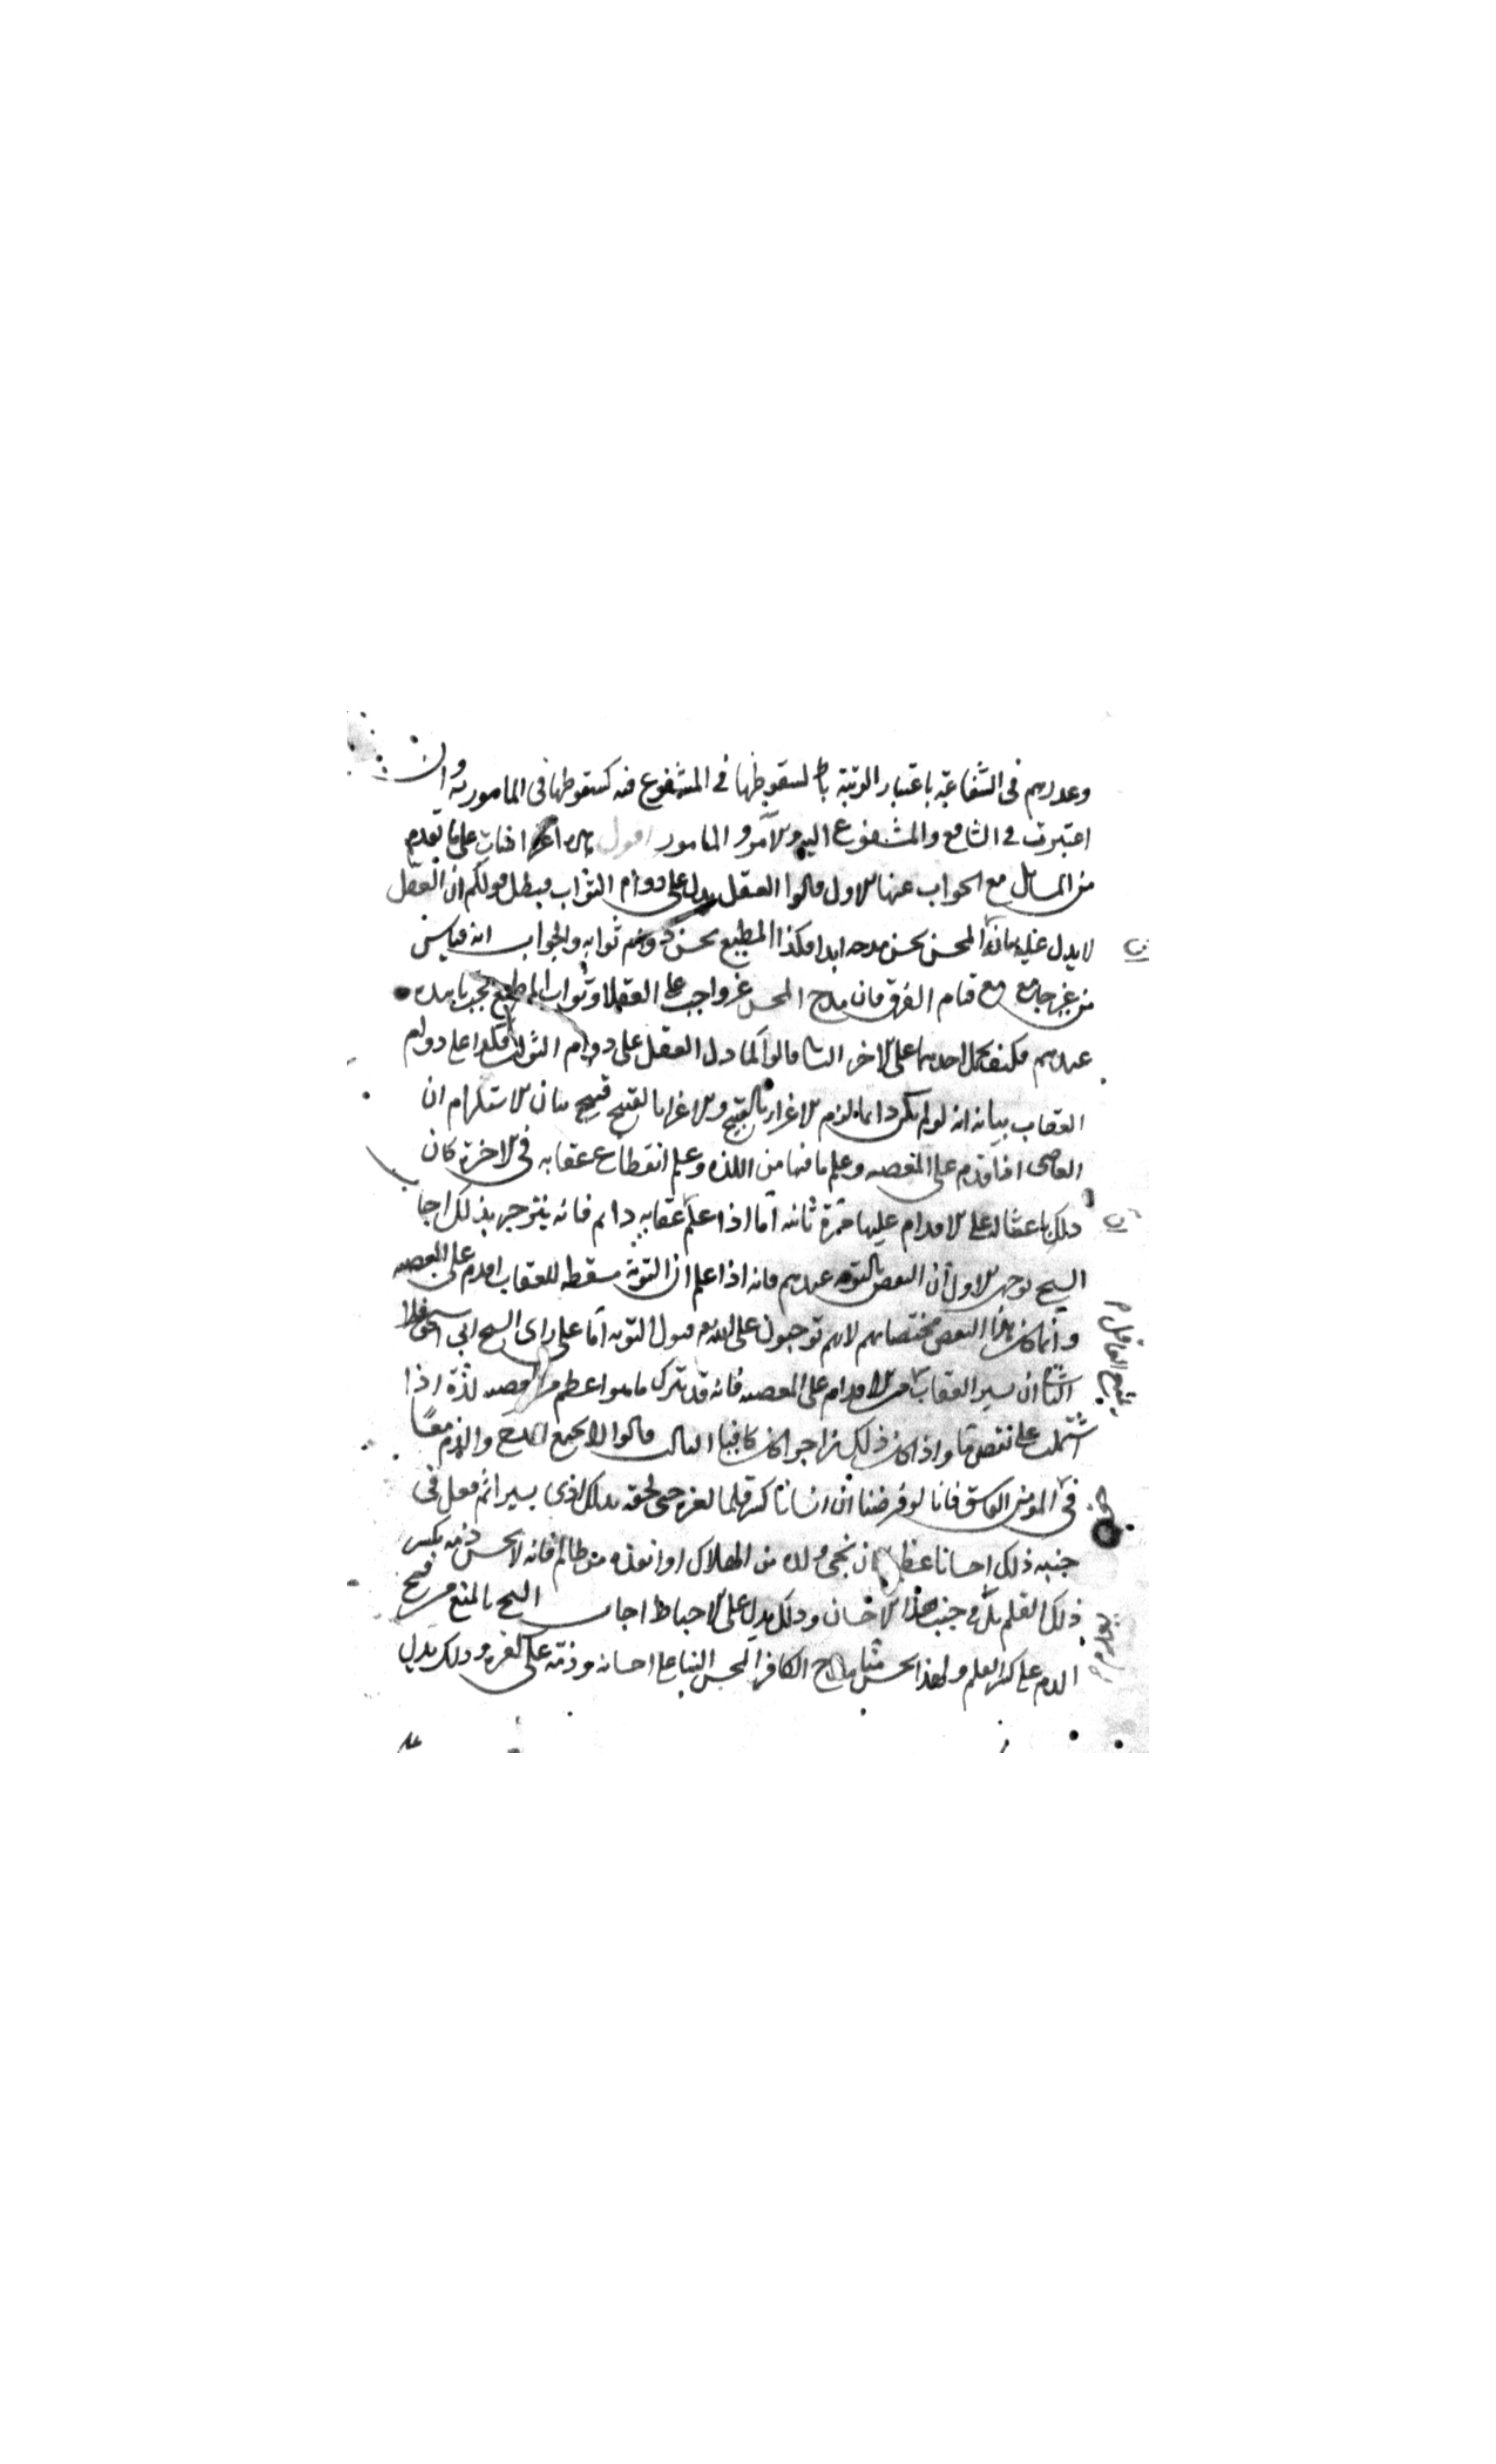 وعذرهم فى الشفاعة باعتبار الرتبة باطل لسقوطها فى المشفوع فيه كسقوطها فى المامور به وان
اعتبرت فى الشافع والمشفوع اليه والآمر والمامور اقول هذه اعتراضات على ما تقدم
من المسائل مع الجواب عنها الاول قالوا العقل يدل على دوام الثواب فبطل قولكم ان العقل
لا يدل عليه بيانه ان المحسن يحسن مدحه ابدا فكذا المطيع يحسن دوام ثوابه والجواب انه قياس
من غير جامع مع قيام الفرق فان مدح المحسن غير واجب على العقلا وثواب المطيع يجب تابيده
عندهم فكيف يحمل احدهما على الاخر الثانى قالوا كما دل العقل على دوام الثواب فكذا على دوام
العقاب بيانه انه لو لم يكن دائما لزم الاغراء بالقبيح والاغراء بالقبيح قبيح بيان الاستلزام ان
العاصى اذا اقدم على المعصيه وعلم ما فيها من اللذه وعلم انقطاع عقابه فى الاخرة كان
ذلك باعثا له على الاقدام عليها مرة ثانيه اما اذا علم ان عقابه دائم فانه ينزجر بذلك اجاب
الشيخ بوجهين الاول ان النقض بالتوبه عندهم فانه اذا علم ان التوبة مسقطه للعقاب اقدم على المعصيه
وانما كان هذا النقض مختصا بهم لانهم يوجبون على الله تعالى قبول التوبه اما على راى الشيخ ابى اسحق فلا
الثانى ان يسير العقاب الاقدام على المعصيه فانه قد يترك ما هو اعظم من المعصيه لذة اذا
اشتملت على نقص ما واذا كان ذلك زاجرا كان كافيا الثالث قالوا لا يجتمع المدح والذم معا
فى المؤمن الفاسق فانا لو فرضنا ان انسانا كسر قلما لغيره حتى لحقه بذلك اذى يسير ثم فعل فى
جنبه ذلك احسانا عظيما بان نجى ولده من الهلاك او انقذه من ظالم فانه لا يحسن ذمه بكسر
ذلك القلم فى جنب هذا الاحسان وذلك يدل على الاحباط اجاب الشيخ بالمنع من قبح
الذم على كسر القلم ولهذا يحسن منا مدح الكافر المحسن الينا على احسانه وذمه على كفره وذلك يدل